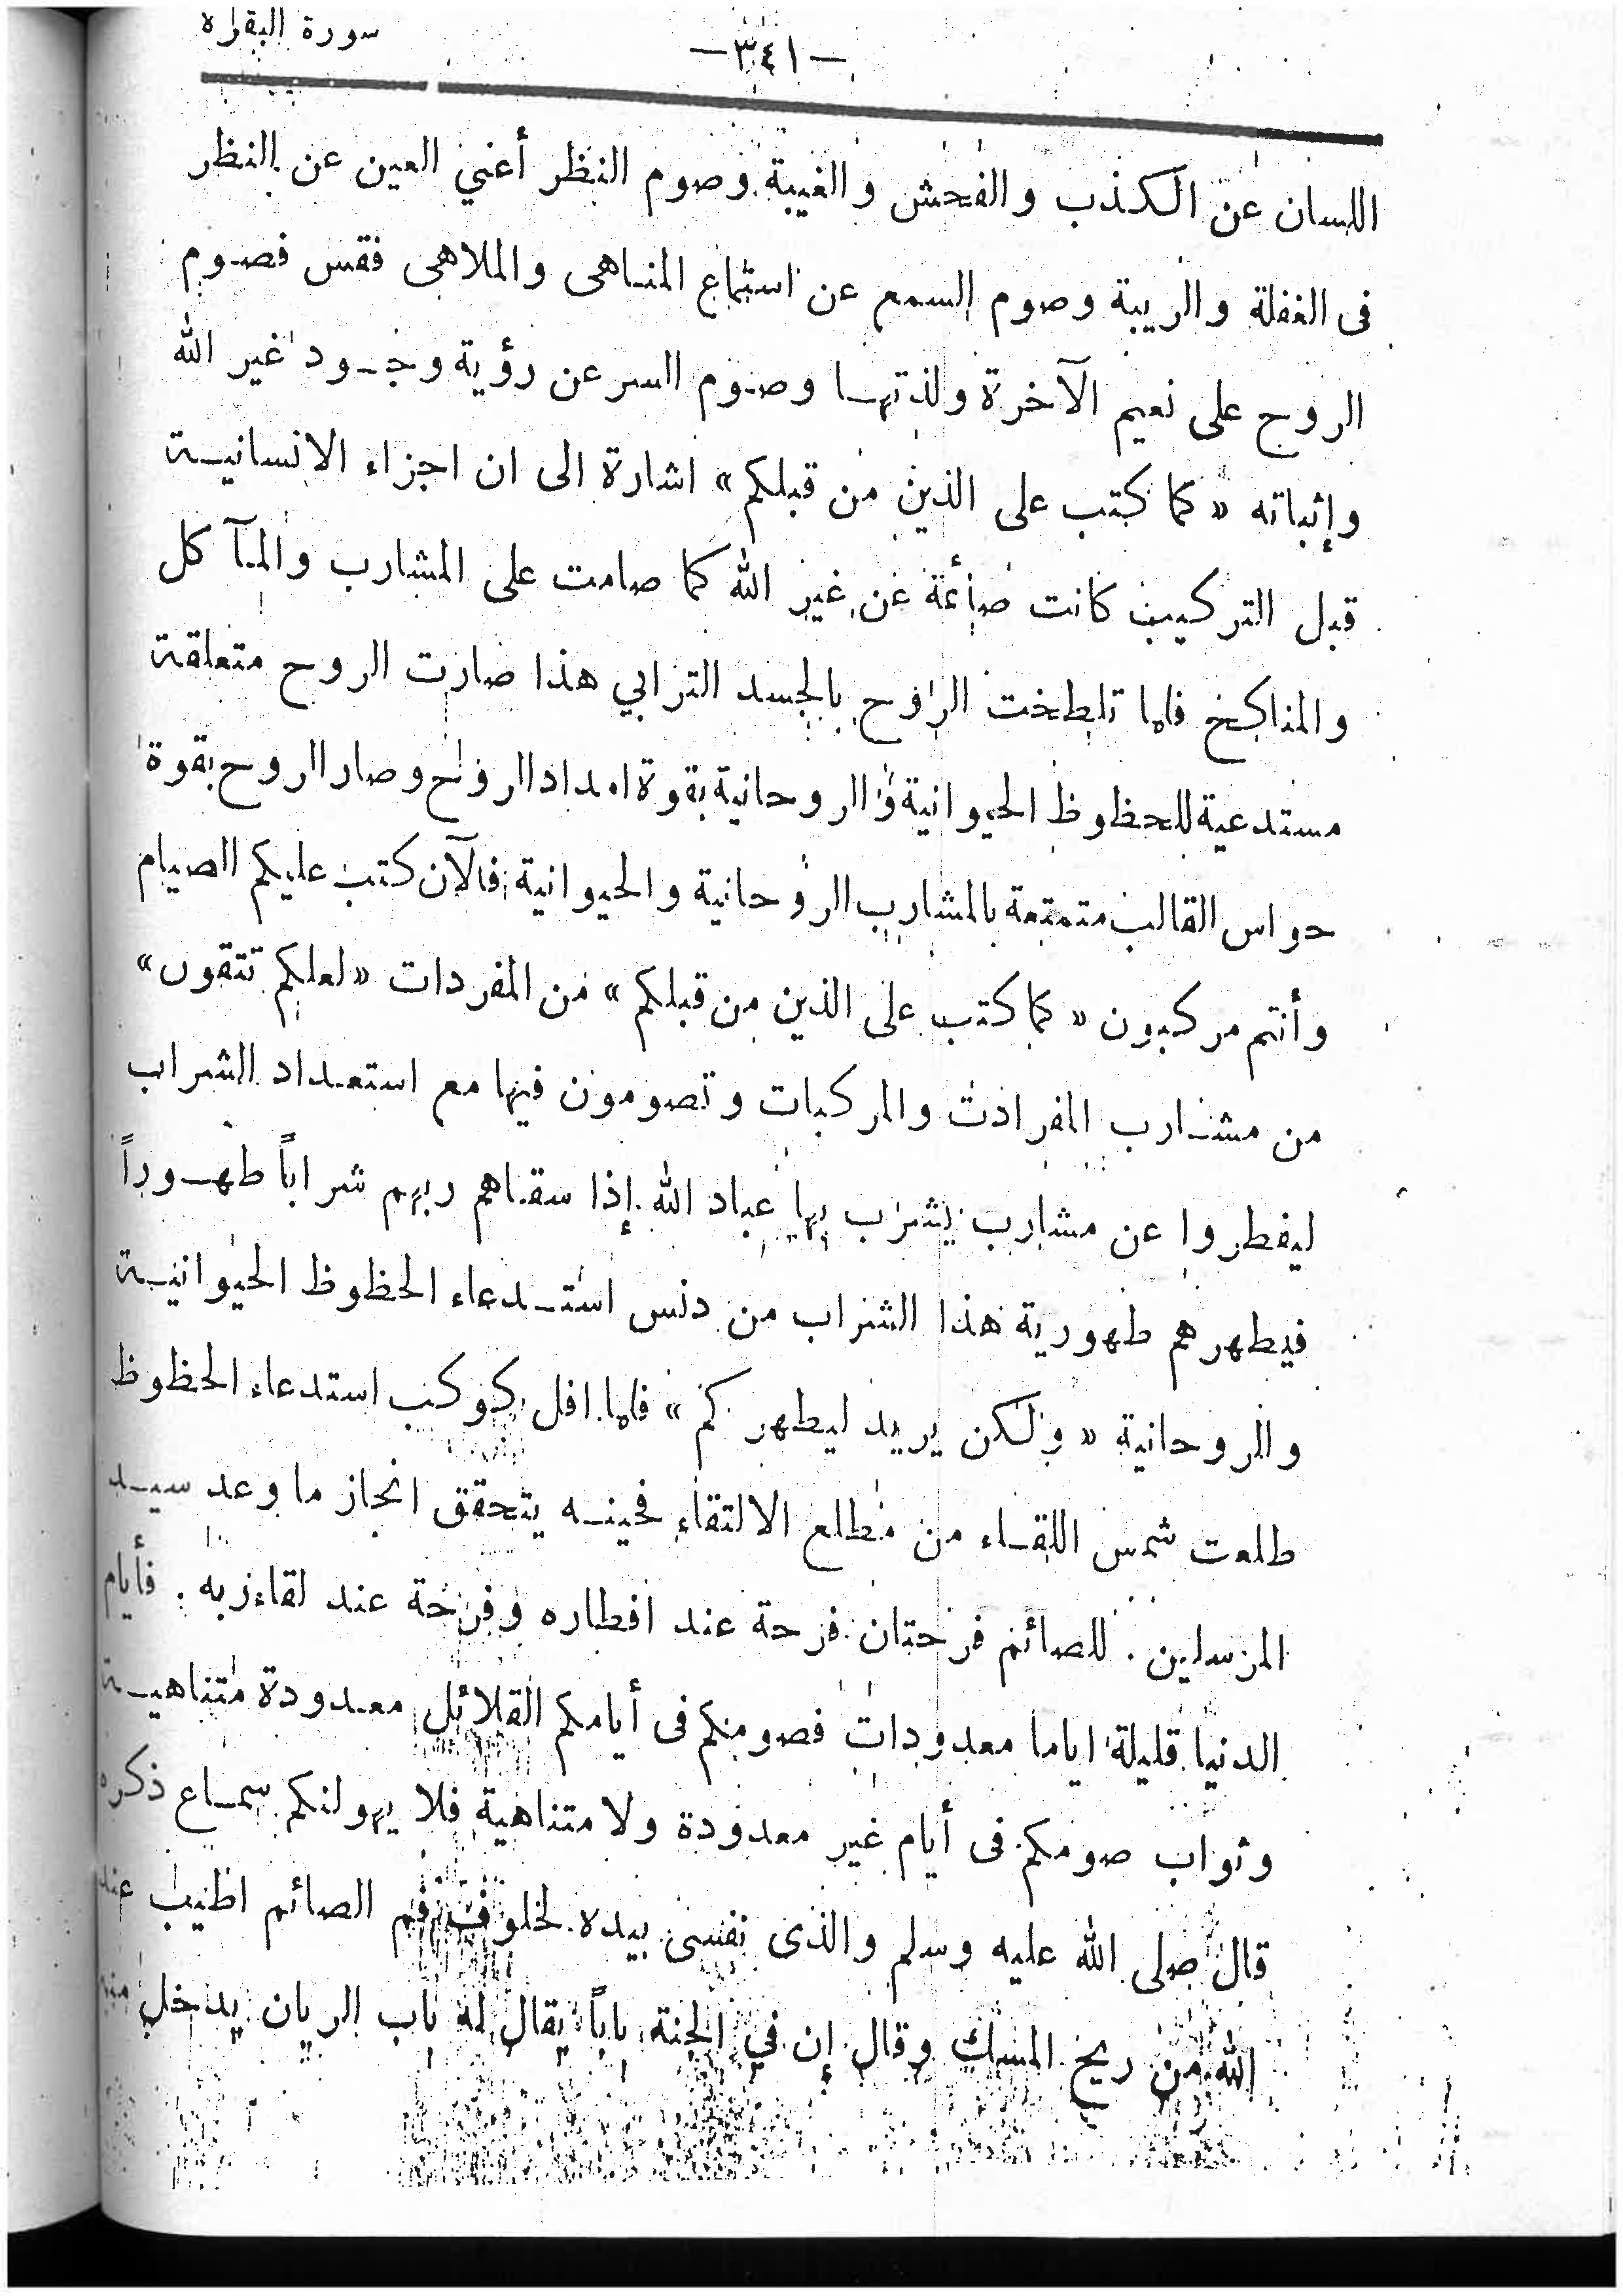 سورة البقره
—٣٤١—
اللسان عن الكذب والفحش والغيبة وصوم النظر أعني العين عن النظر
فى الغفلة والريبة وصوم السمع عن استماع المناهى والملاهى فقس فصوم
الروح على نعيم الآخرة ولذتها وصوم السر عن رؤية وجود غير الله
وإثباته « كما كتب على الذين من قبلكم » اشارة الى ان اجزاء الانسانية
قبل التركيب كانت صائمة عن غير الله كما صامت على المشارب والمآ كل
والمناكح فلما تلطخت الروح بالجسد الترابي هذا صارت الروح متعلقة
مستدعية للحظوظ الحيوانية والروحانية بقوة امداد الروح وصار الروح بقوة
حواس القالب متمتعة بالمشارب الروحانية والحيوانية فالآن كتب عليكم الصيام
وأنتم مركبون « كما كتب على الذين من قبلكم » من المفردات « لعلكم تتقون »
من مشارب المفرادت والمركبات وتصومون فيها مع استعداد الشراب
ليفطروا عن مشارب يشرب بها عباد الله إذا سقاهم ربهم شراباً طهوراً
فيطهرهم طهورية هذا الشراب من دنس استدعاء الحظوظ الحيوانية
والروحانية « ولكن يريد ليطهركم » فلما افل كوكب استدعاء الحظوظ
طلعت شمس اللقاء من مطلع الالتقاء فحينه يتحقق انجاز ما وعد سيد
المرسلين . للصائم فرحتان فرحة عند افطاره وفرحة عند لقاء ربه . فأيام
الدنيا قليلة اياما معدودات فصومكم فى أيامكم القلائل معدودة متناهية
وثواب صومكم فى أيام غير معدودة ولا متناهية فلا يهولنكم سماع ذكره
قال صلى الله عليه وسلم والذى نفسى بيده لخلوف فم الصائم اطيب عند
الله من ريح المسك وقال إن في الجنة باباً يقال له باب الريان يدخل منه